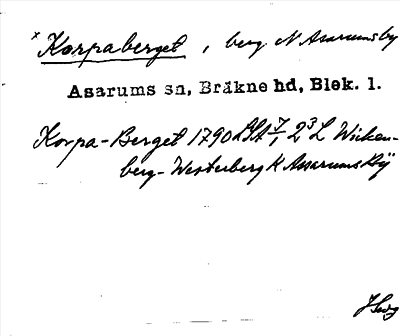 x Korpaberget, berg N Asarumsby
Asarums sn, Bräkne hd, Blek. l.
Korpa-Berget 1790 LSA 7/1, 2³ L Wicken-
berg-Westerberg k Assarums By